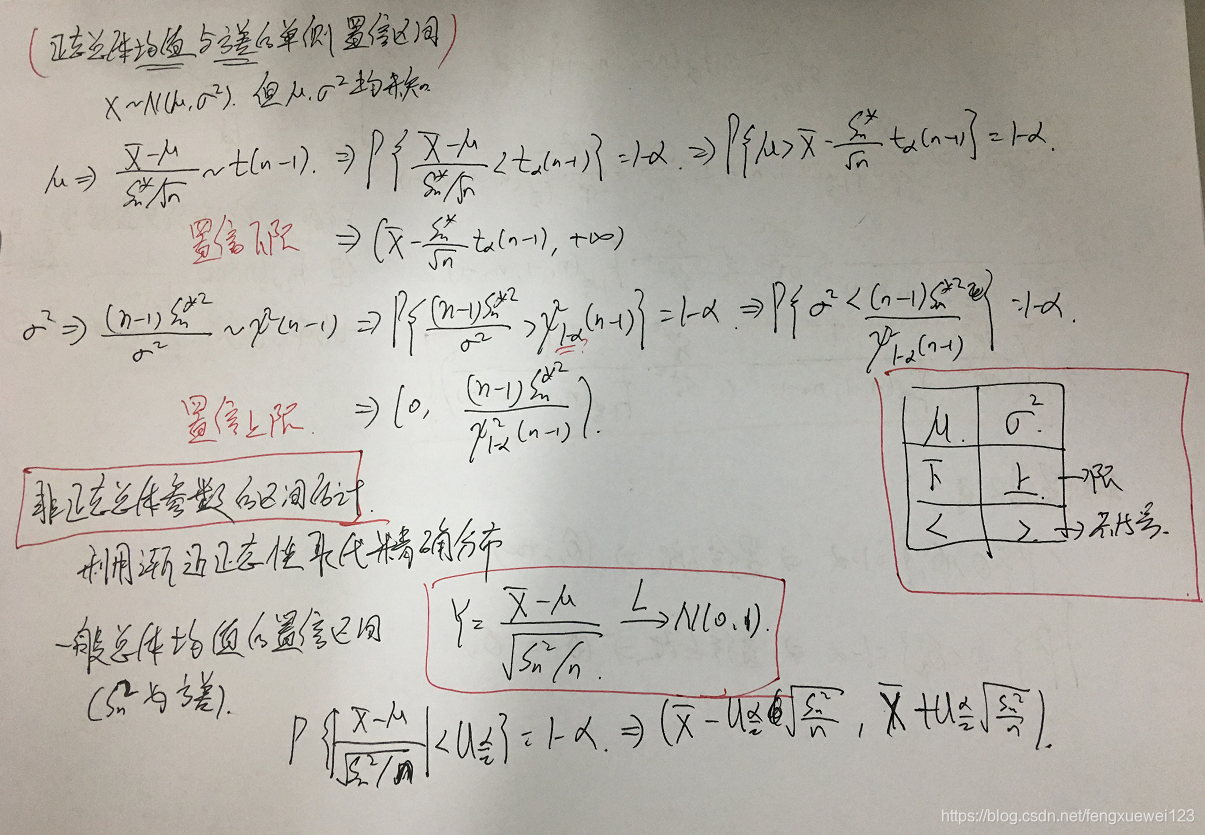 (正态总体均值与方差的单侧置信区间)
X~N(μ,σ²). 但μ,σ²均未知
μ⇒ (X̄-μ)/(Sₙ*/√n) ~ t(n-1). ⇒ P{(X̄-μ)/(Sₙ*/√n) < t_α(n-1)} = 1-α. ⇒ P{μ > X̄ - Sₙ*/√n t_α(n-1)} = 1-α.
置信下限 ⇒ (X̄ - Sₙ*/√n t_α(n-1), +∞)
σ² ⇒ (n-1)Sₙ*²/σ² ~ χ²(n-1) ⇒ P{(n-1)Sₙ*²/σ² > χ²_{1-α}(n-1)} = 1-α ⇒ P{σ² < (n-1)Sₙ*²/χ²_{1-α}(n-1)} = 1-α.
置信上限. ⇒ (0, (n-1)Sₙ*²/χ²_{1-α}(n-1)).
μ. σ².
下 上. →限
< >. →不等号.
非正态总体参数的区间估计.
利用渐近正态性取代精确分布
一般总体均值的置信区间
(Sₙ²为方差).
Y = (X̄-μ)/√(Sₙ²/n) →L N(0,1).
P{|(X̄-μ)/√(Sₙ²/n)| < U_{α/2}} = 1-α. ⇒ (X̄ - U_{α/2}√(Sₙ²/n), X̄ + U_{α/2}√(Sₙ²/n)).
https://blog.csdn.net/fengxuewei123